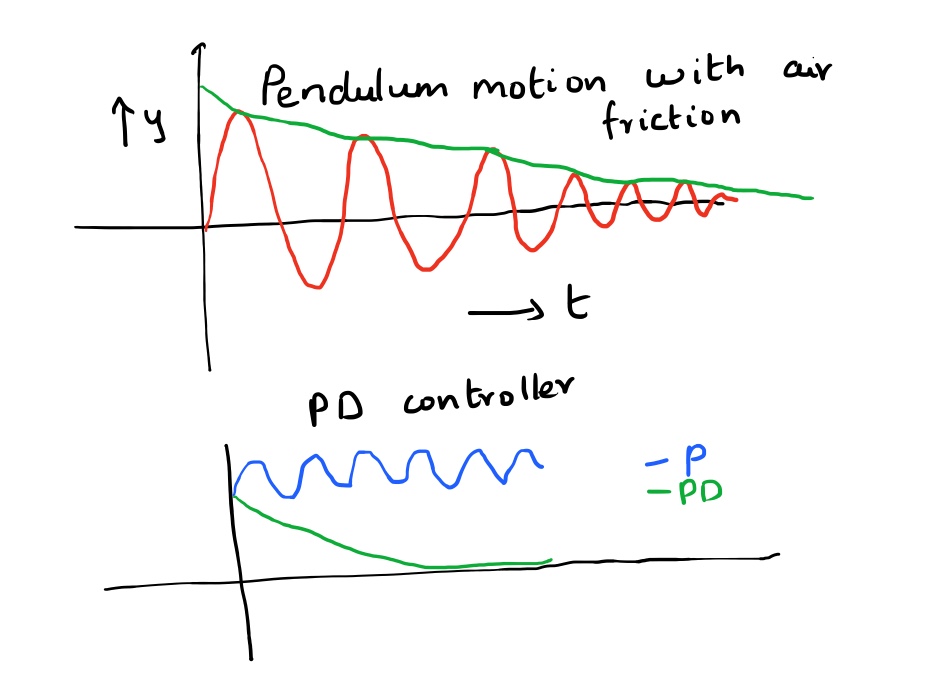 Pendulum motion with air
friction
↑ y
→ t
PD controller
- P
- PD